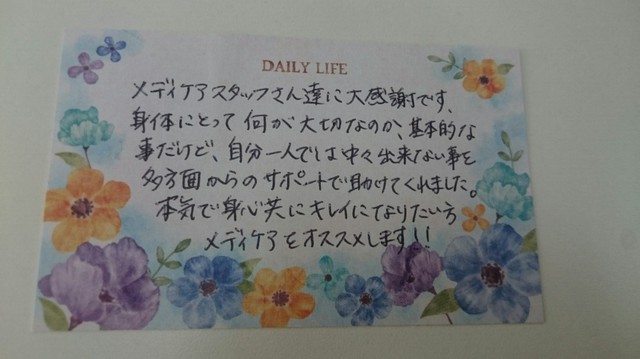 DAILY LIFE
メディケアスタッフさん達に大感謝です、
身体にとって何が大切なのか、基本的な
事だけど、自分一人では中々出来ない事を
多方面からのサポートで助けてくれました。
本気で身心共にキレイになりたい方
メディケアをオススメします!!